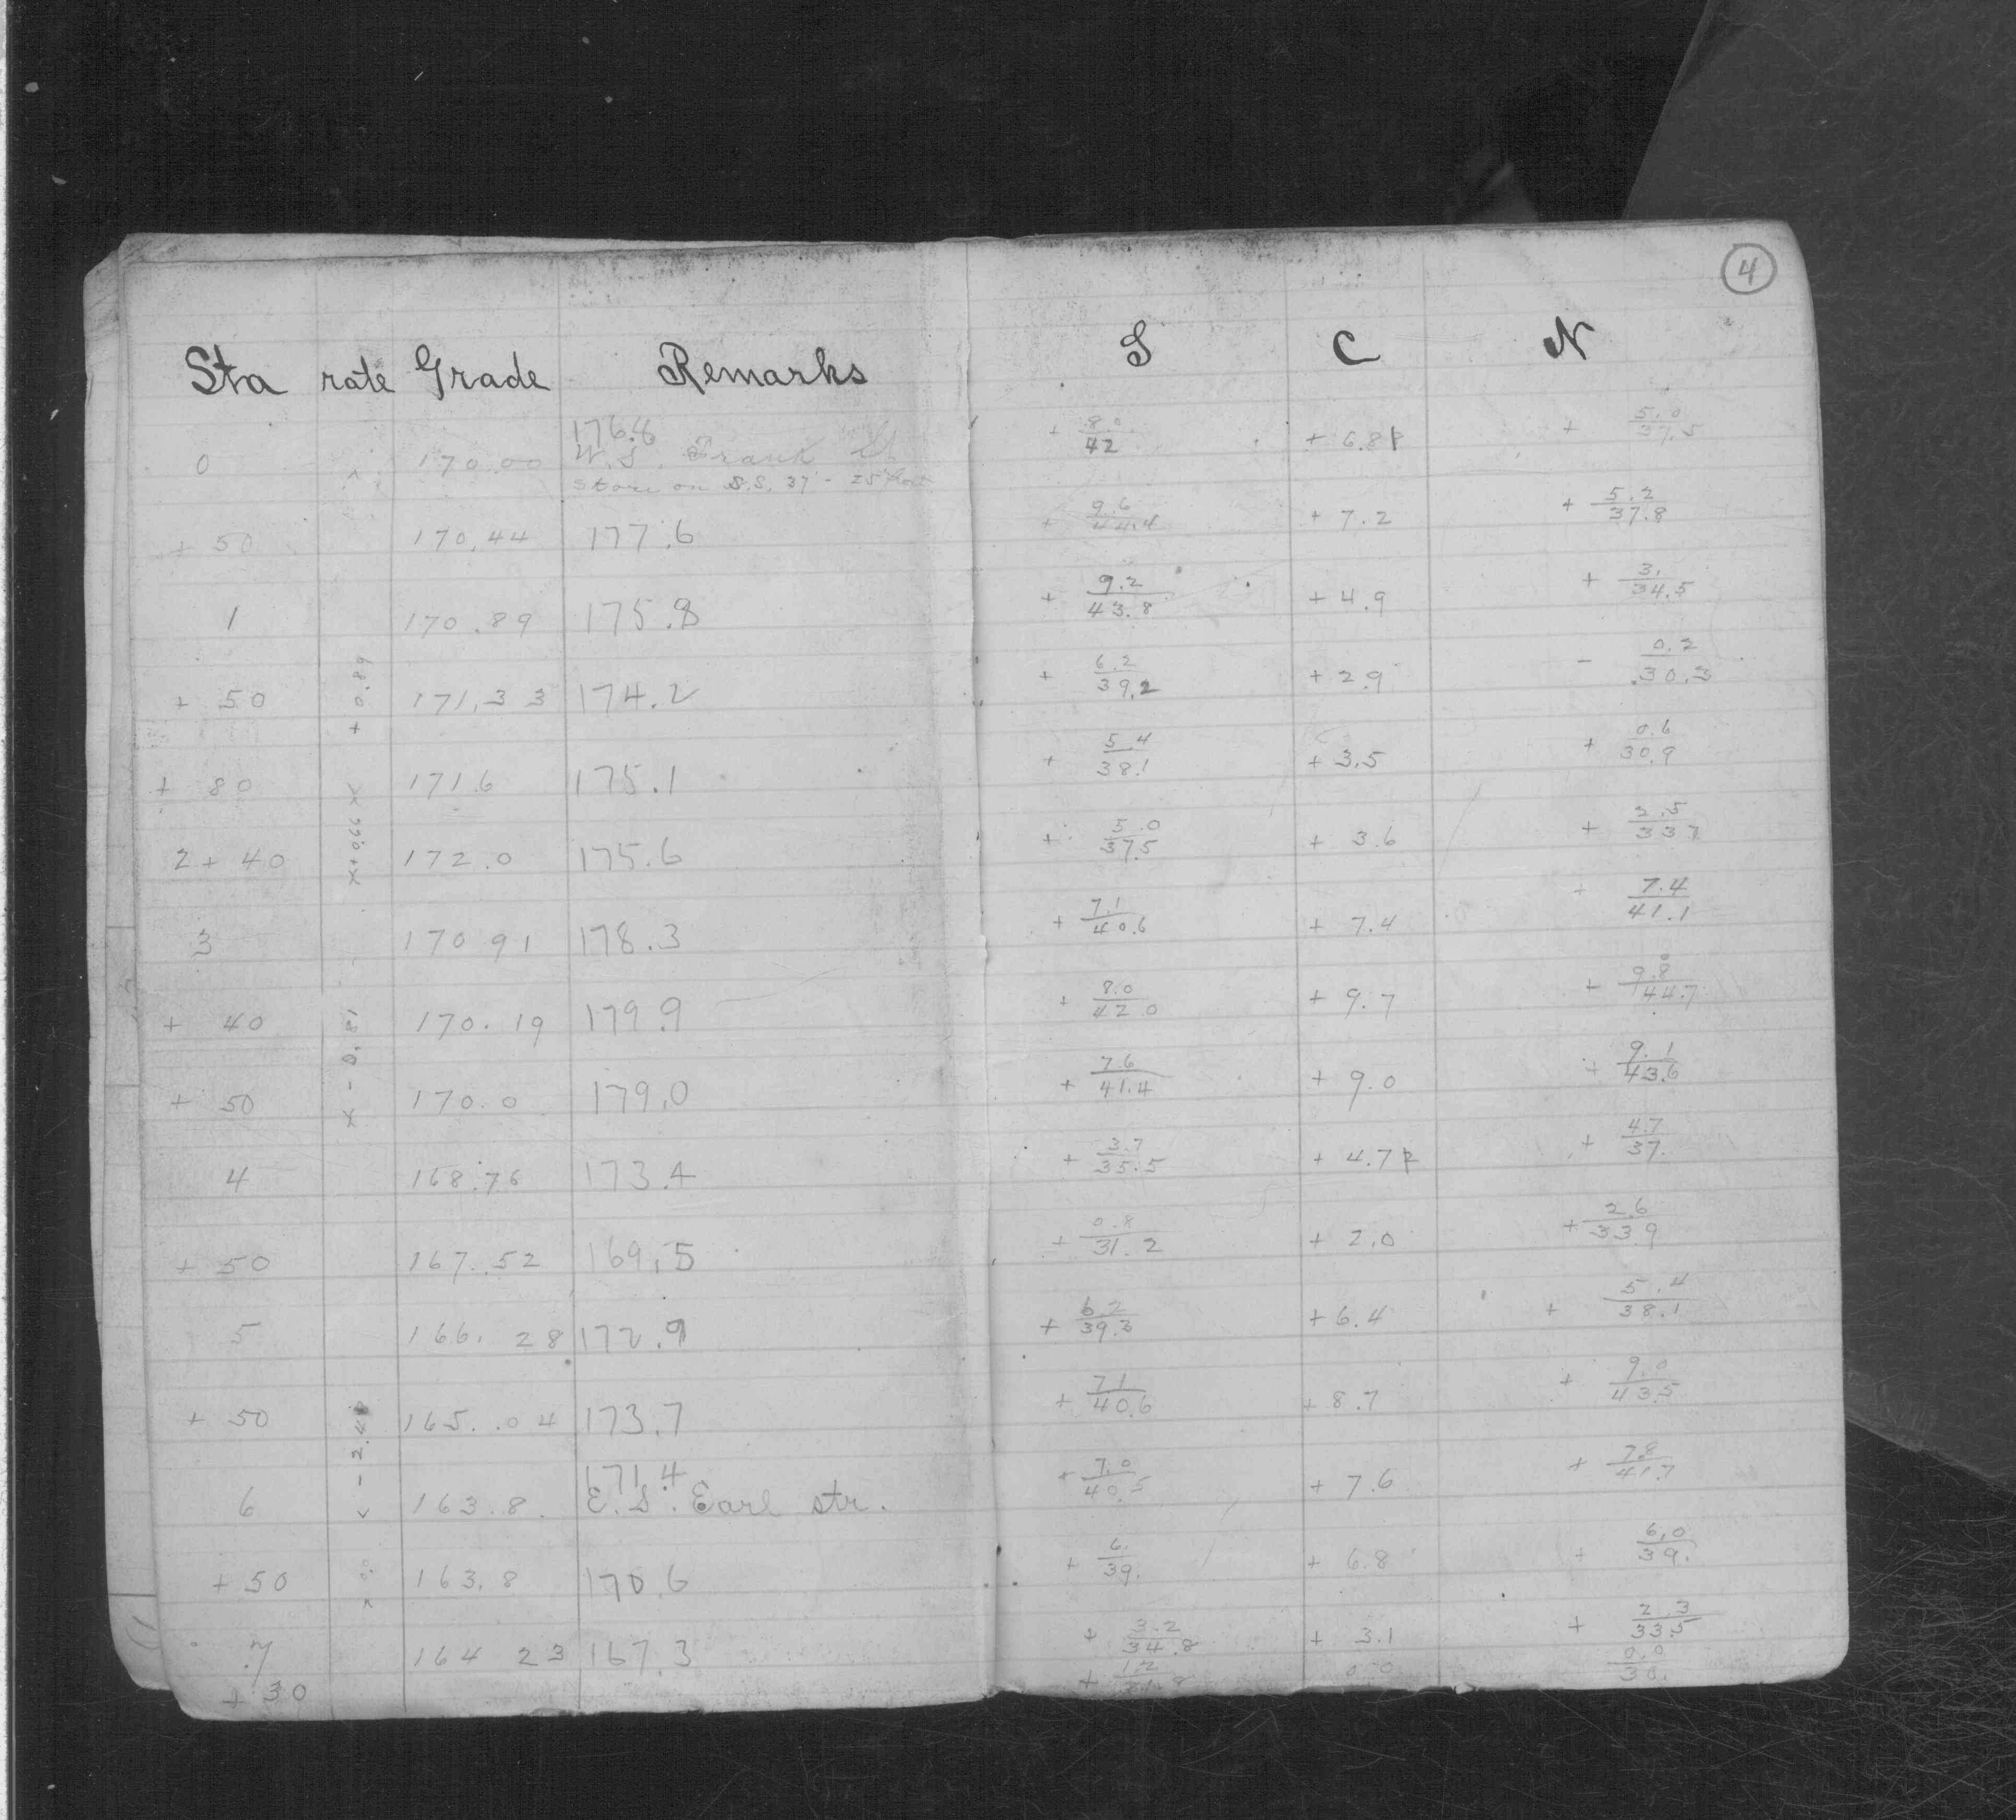 4
Sta rate Grade Remarks S C N
176.8
0 170.00 W.S. Frank St. + 8.0/42 + 6.8 + 5.0/37.5
Store on S.S. 37' - 25'
+ 50 170.44 177.6 + 9.6/44.4 + 7.2 + 5.2/37.8
1 170.89 175.8 + 9.2/43.8 + 4.9 + 3./34.5
+ 0.89
+ 50 171.33 174.2 + 6.2/39.2 + 2.9 - 0.2/30.3
+ 80 171.6 175.1 + 5.4/38.1 + 3.5 + 0.6/30.9
x+0.66 x
2 + 40 172.0 175.6 + 5.0/37.5 + 3.6 + 2.5/33.7
3 170 91 178.3 + 7.1/40.6 + 7.4 + 7.4/41.1
+ 40 170.19 179.9 + 8.0/42.0 + 9.7 + 9.8/44.7
x - 0.81
+ 50 170.0 179.0 + 7.6/41.4 + 9.0 + 9.1/43.6
4 168.76 173.4 + 3.7/35.5 + 4.7 + 4.7/37.
+ 50 167.52 169.5 + 0.8/31.2 + 2.0 + 2.6/33.9
5 166.28 172.9 + 6.2/39.3 + 6.4 + 5.4/38.1
+ 50 165.04 173.7 + 7.1/40.6 + 8.7 + 9.0/43.5
- 2.48
171.4
6 163.8. E.S. Earl str. + 7.0/40.5 + 7.6 + 7.8/41.7
+ 50 0.0 163.8 170.6 + 6./39. + 6.8 + 6.0/39.
7 164 23 167.3 + 3.2/34.8 + 3.1 + 2.3/33.5
+ 30 + 1.2/31.8 0.0 0.0/30.